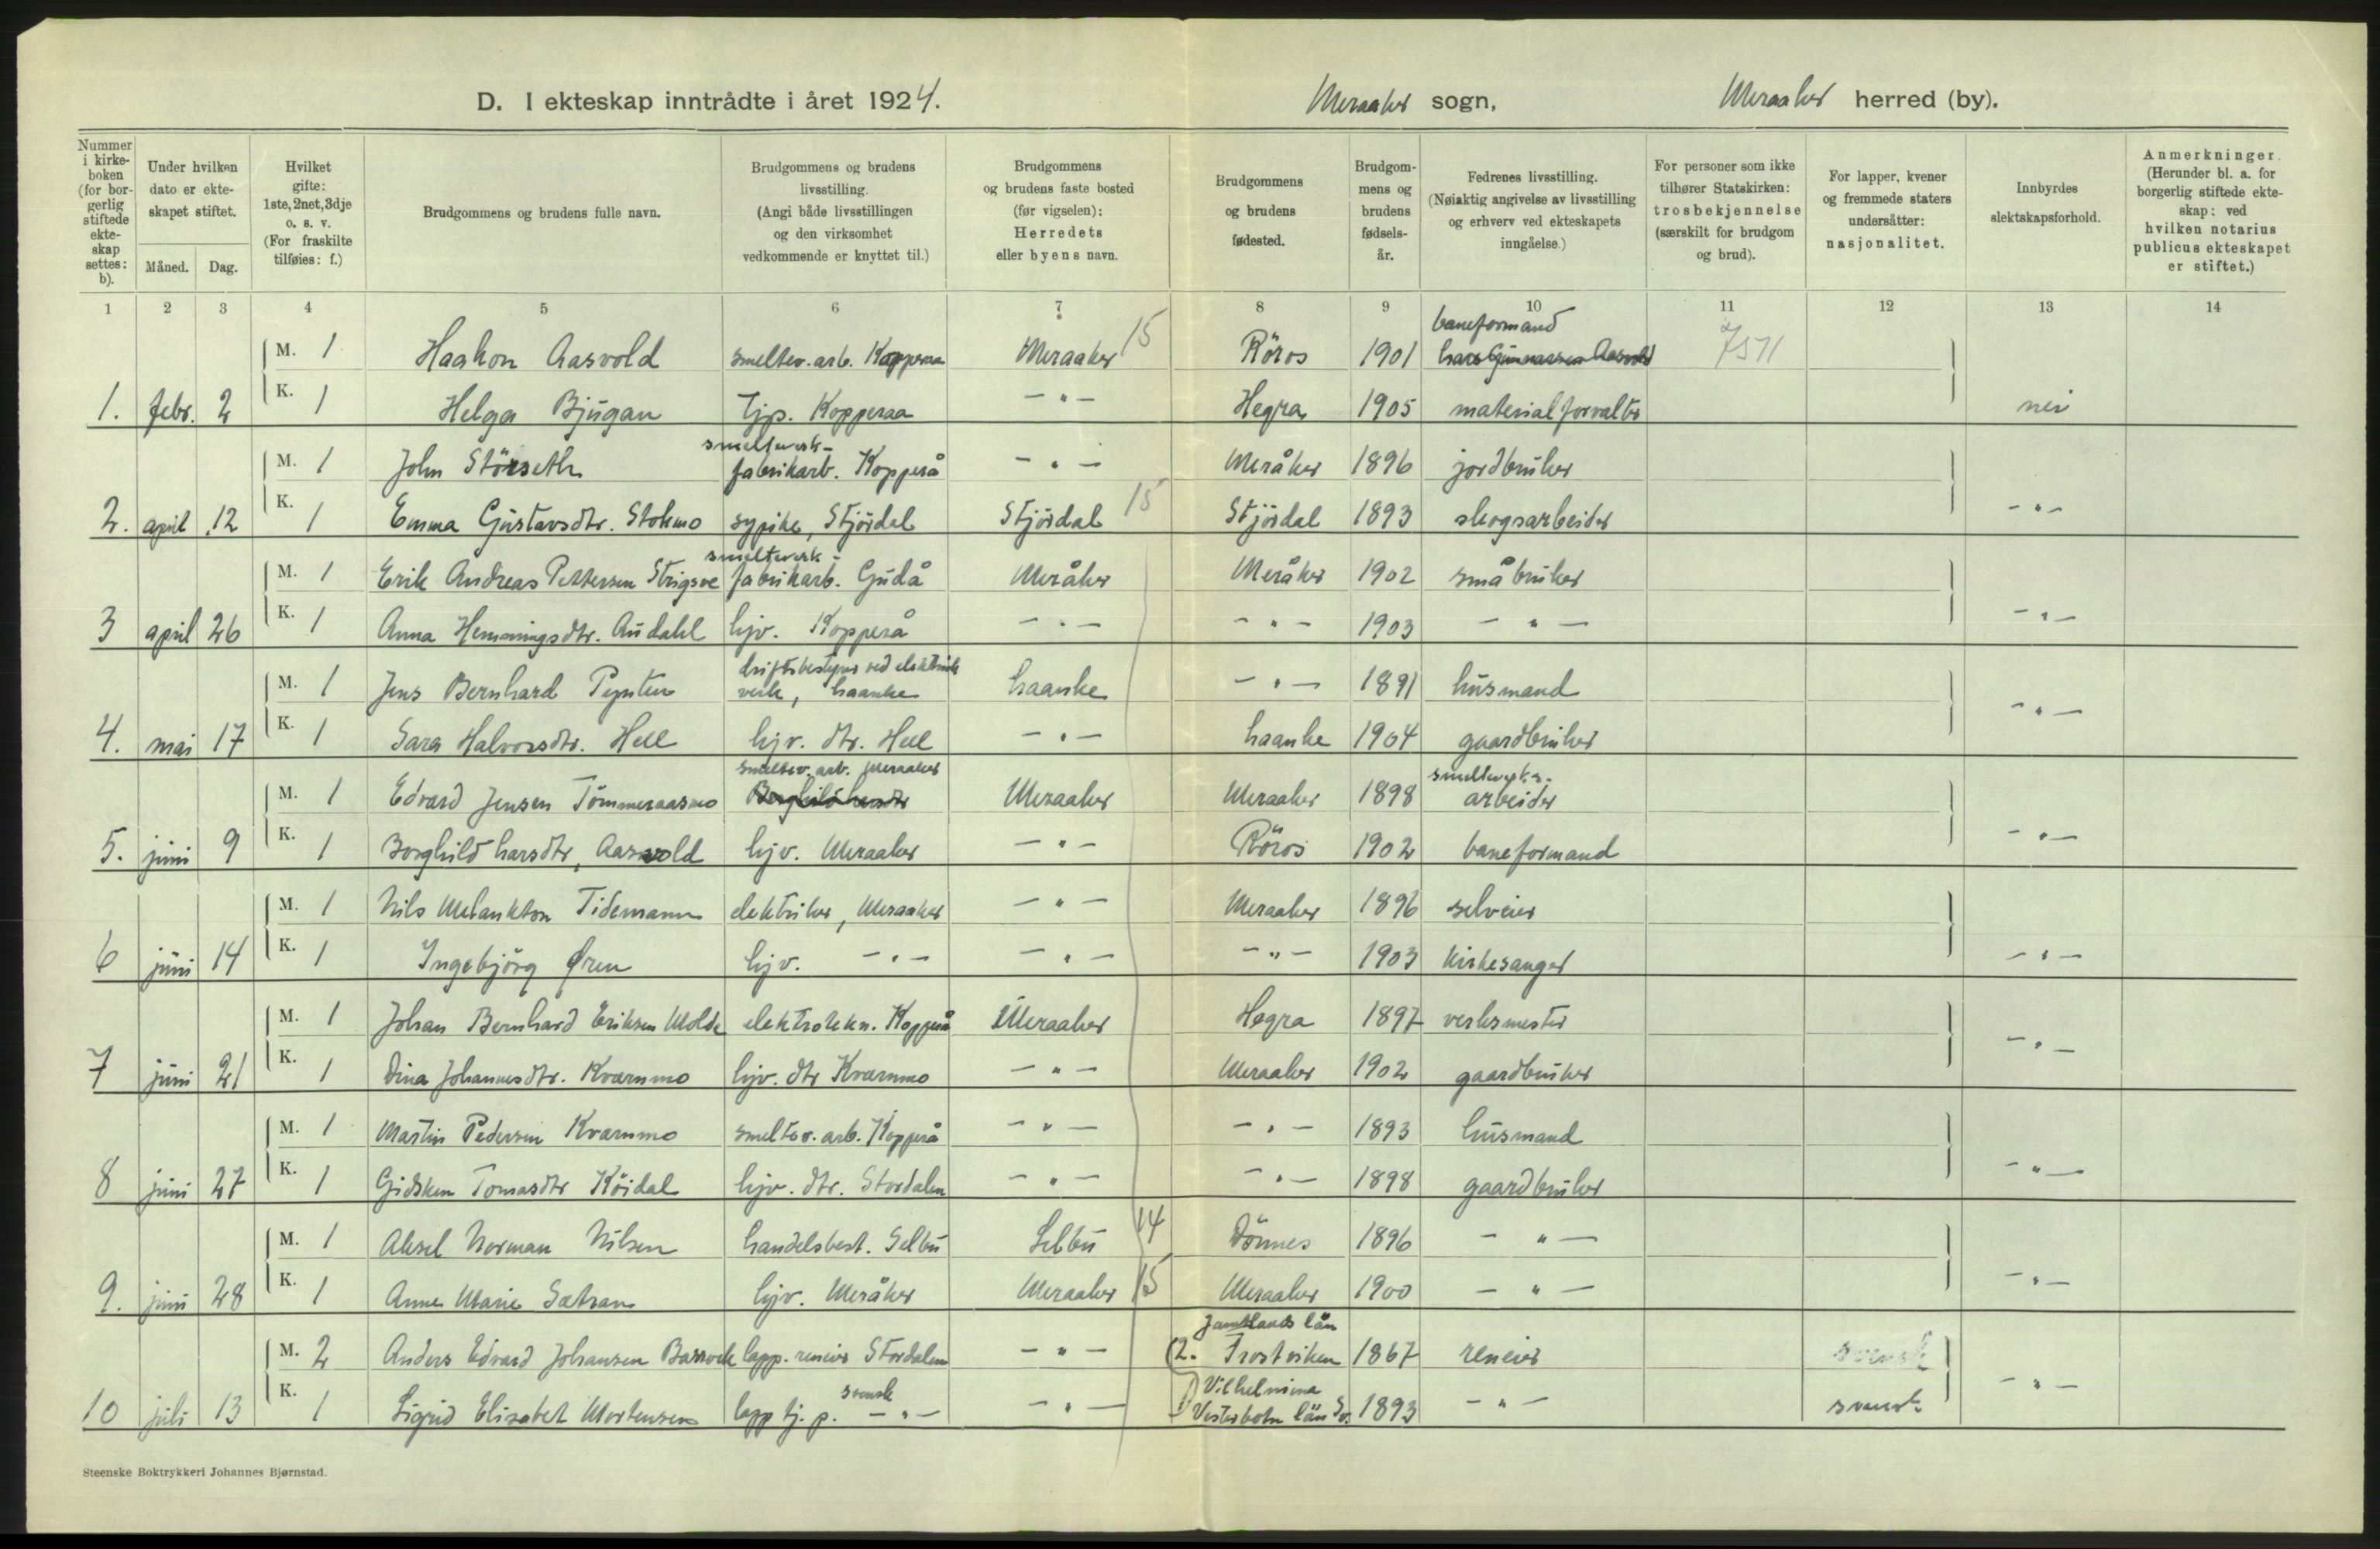 D. I ekteskap inntrådte i året 1924.
Meraaker sogn,
Meraaker herred (by).
Nummer i kirkeboken (for borgerlig stiftede ekteskap settes: b).
Under hvilken dato er ekteskapet stiftet.
Måned. Dag.
Hvilket gifte: 1ste, 2net, 3dje o. s. v. (For fraskilte tilføies: f.)
Brudgommens og brudens fulle navn.
Brudgommens og brudens livsstilling. (Angi både livsstillingen og den virksomhet vedkommende er knyttet til.)
Brudgommens og brudens faste bosted (før vigselen): Herredets eller byens navn.
Brudgommens og brudens fødested.
Brudgommens og brudens fødselsår.
Fedrenes livsstilling. (Nøiaktig angivelse av livsstilling og erhverv ved ekteskapets inngåelse.)
For personer som ikke tilhører Statskirken: trosbekjennelse (særskilt for brudgom og brud).
For lapper, kvener og fremmede staters undersåtter: nasjonalitet.
Innbyrdes slektskapsforhold.
Anmerkninger. (Herunder bl. a. for borgerlig stiftede ekteskap: ved hvilken notarius publicus ekteskapet er stiftet.)
1 2 3 4 5 6 7 8 9 10 11 12 13 14
M. 1 Haakon Aasvold smeltev. arb. Kopperaa Meraaker 15 Röros 1901 baneformand Lars Gunnarsen Aasvold 7571
1. febr. 2 K. 1 Helga Bjugan tjp. Kopperaa - " - Hegra 1905 materialforvalter nei
M. 1 John Störseth smelteverk- fabrikarb. Kopperå - " - Meråker 1896 jordbruker
2. april 12 K. 1 Emma Gustavsdtr. Stokmo sypike, Stjördal Stjördal 15 Stjördal 1893 skogsarbeider - " -
M. 1 Erik Andreas Pettersen Strigsve smelteverk- fabrikarb. Gudå Meråker Meråker 1902 småbruker
3 april 26 K. 1 Anna Hemmingsdtr. Audahl hjv. Kopperå - " - - " - 1903 - " - - " -
M. 1 Jens Bernhard Pynten driftsbestyrer ved elektrisk verk, Laanke Laanke - " - 1891 husmand
4. mai 17 K. 1 Sara Halvorsdtr. Hell hjv. dtr. Hell - " - Laanke 1904 gaardbruker - " -
M. 1 Edvard Jensen Tömmeraasmo smeltev. arb. Meraaker Borghild Larsdtr Meraaker Meraaker 1898 smelteverks- arbeider
5. juni 9 K. 1 Borghild Larsdtr, Aasvold hjv. Meraaker - " - Röros 1902 baneformand - " -
M. 1 Nils Melankton Tidemann elektriker, Meraaker - " - Meraaker 1896 selveier
6 juni 14 K. 1 Ingebjörg Øren hjv. - " - - " - - " - 1903 kirkesanger - " -
M. 1 Johan Bernhard Eriksen Molde elektrotekn. Kopperå Meraaker Hegra 1897 verksmester
7 juni 21 K. 1 Dina Johannesdtr. Kvarnmo hjv. dtr Kvarnmo - " - Meraaker 1902 gaardbruker - " -
M. 1 Martin Pedersen Kvarnmo smeltev. arb. Kopperå - " - - " - 1893 husmand
8 juni 27 K. 1 Gidsken Tomasdtr Köidal hjv. dtr. Stordalen - " - - " - 1898 gaardbruker - " -
M. 1 Aksel Norman Nilsen handelsbest. Selbu Selbu 14 Dönnes 1896 - " -
9. juni 28 K. 1 Anne Marie Sætran hjv. Meråker Meraaker 15 Meraaker 1900 - " - - " -
M. 2 Anders Edvard Johansen Barrock lapp. reneier Stordalen - " - Jamtlands län (2. Frostviken 1867 reneier svensk
10 juli 13 K. 1 Sigrid Elisabet Mortensen lapp tj. p. svensk - " - - " - Vilhelmina Vesterbotn län Sv. 1893 - " - svensk - " -
Steenske Boktrykkeri Johannes Bjørnstad.